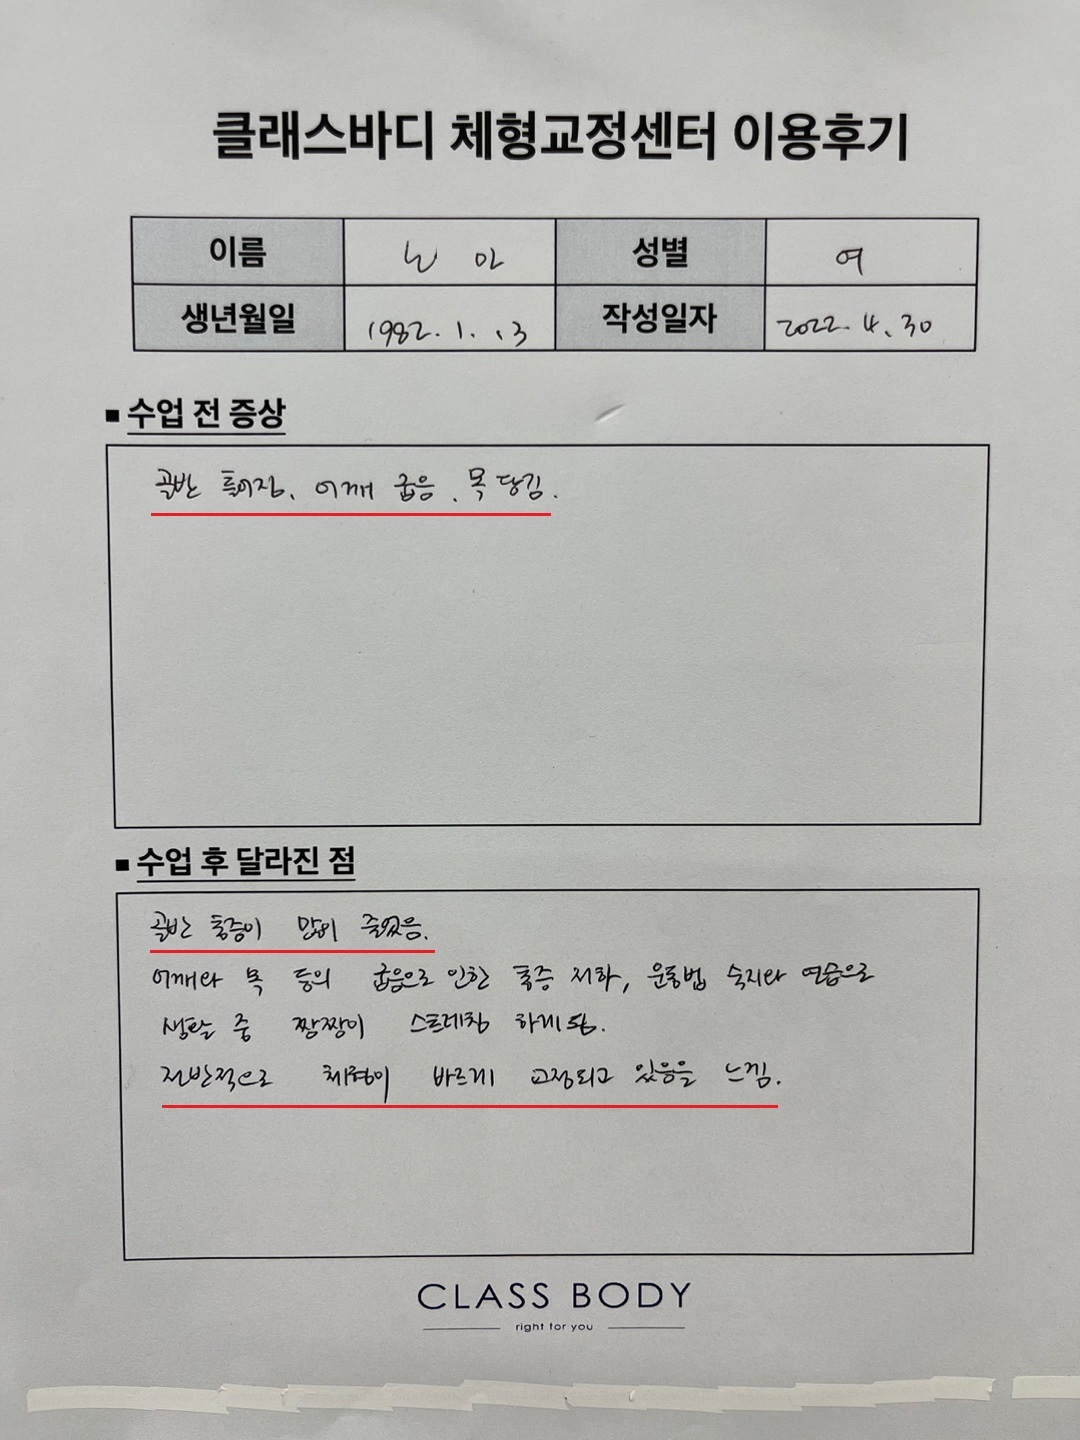 클래스바디 체형교정센터 이용후기
이름 노 아 성별 여
생년월일 1982. 1. 13 작성일자 2022. 4. 30
■ 수업 전 증상
골반 틀어짐, 어깨 굽음, 목 당김.
■ 수업 후 달라진 점
골반 통증이 많이 줄었음.
어깨와 목 등의 굽음으로 인한 통증 저하, 운동법 숙지와 연습으로
생활 중 짬짬이 스트레칭 하게 됨.
전반적으로 체형이 바르게 교정되고 있음을 느낌.
CLASS BODY
right for you